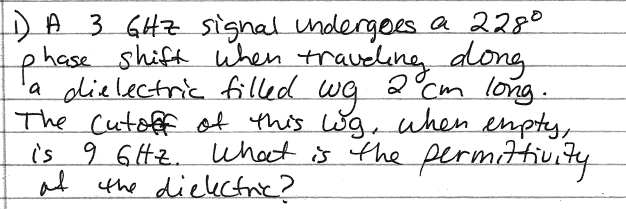 1) A 3 GHz signal undergoes a 228°
phase shift when traveling along
a dielectric filled wg 2 cm long.
The cutoff of this wg, when empty,
is 9 GHz. What is the permittivity
of the dielectric?